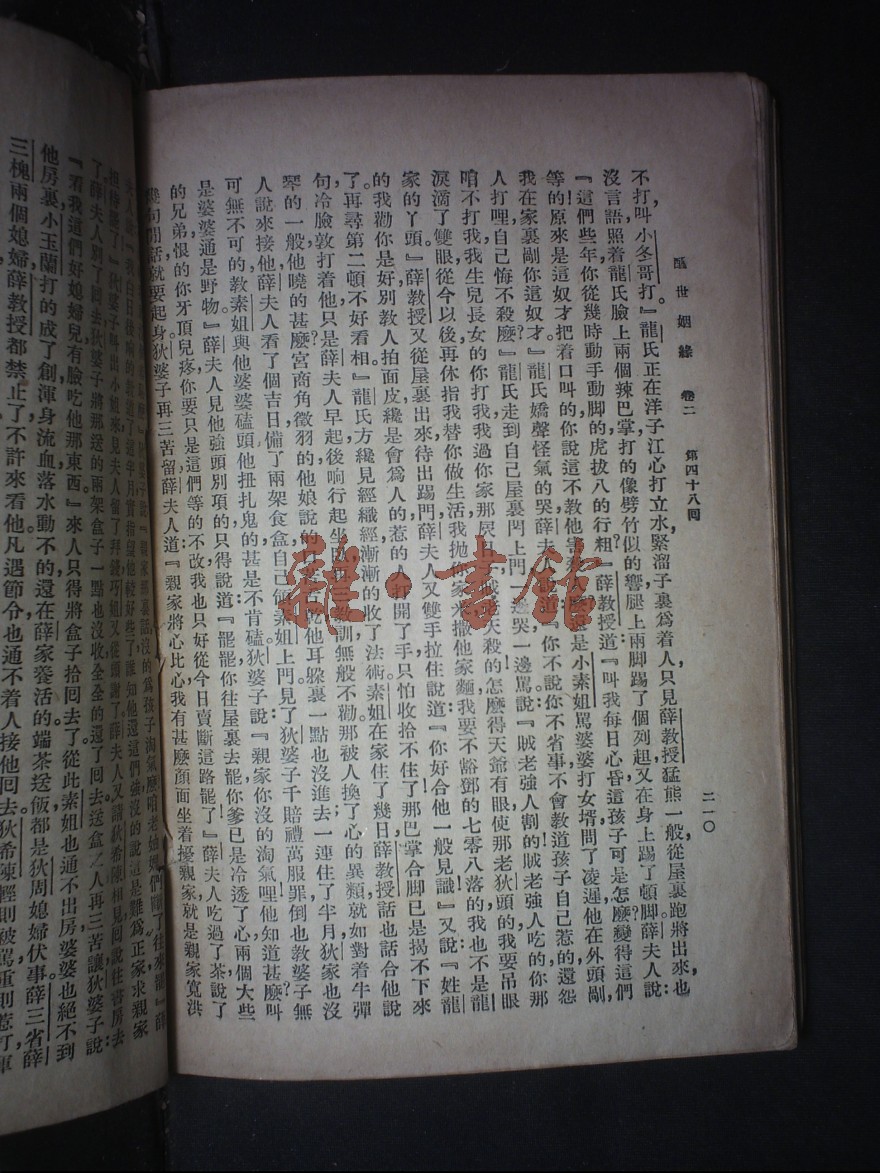 醒世姻緣 卷二 第四十八回 二一〇
不打,叫小冬哥打。』龍氏正在洋子江心打立水,緊溜子裏爲着人,只見薛教授猛熊一般,從屋裏跑將出來,也
沒言語,照着龍氏臉上兩個辣巴掌,打的像劈竹似的響,腿上兩脚,踢了個列趄,又在身上踢了頓脚。薛夫人說:
『這們些年,你從幾時動手動脚的,虎拔八的行粗?』薛教授道:『叫我每日心昏,這孩子可是怎麼變得這們
等的!原來是這奴才把着口叫的!你說這不教他害
小素姐罵婆婆打女壻問了凌遲,他在外頭剮,
我在家裏剮你這奴才!』龍氏嬌聲怪氣的哭。薛夫
道:『你不說你不省事,不會教道孩子,自己惹的,還怨
人打哩!自己悔不殺麼?』龍氏走到自己屋裏,閂上門,一邊哭,一邊罵,說:『賊老強人割的!賊老強人吃的!你那
咱不打我,我生兒長女的你打我!我過你家那
天殺的!怎麼得天爺有眼,使那老狄頭的我要吊眼
淚,滴了雙眼!從今以後,再休指我替你做生活,我抛你家米,撒他家麵,我要不豁鄧的七零八落的,我也不是龍
家的丫頭!』薛教授又從屋裏出來,待出踢門。薛夫人又雙手拉住,說道:『你好合他一般見識!』又說:『姓龍
的,我勸你是好,別教人拍面皮纔是。會爲人的,惹的人打開了手,只怕收拾不住了。那巴掌合脚已是揭不下來
了,再尋第二頓,不好看相。』龍氏方纔見經織經,漸漸的收了法術。素姐在家住了幾日,薛教授話也合他說
句,冷臉敦打着他。只是薛夫人早起後晌,行起坐臥,再三教訓,無般不勸。那被人換了心的異類,就如對着牛彈
琴的一般,他曉的甚麼宮商角徵羽的,他娘說的
他耳躱裏一點也沒進去。一連住了半月,狄家也沒
人說來接他。薛夫人看了個吉日,備了兩架食盒,自己領素姐上門,見了狄婆子,千賠禮,萬服罪,倒也教婆子無
可無不可的。教素姐與他婆婆磕頭,他扭扎鬼的,甚是不肯磕。狄婆子說:『親家,你沒的淘氣哩!他知道甚麼叫
是婆婆!通是野物!』薛夫人見他強頭別項的,只得說道:『罷罷,你往屋裏去罷。你爹已是冷透了心,兩個大些
的兄弟恨的你牙頂兒疼,你要只是這們等的不改,我也只好從今日賣斷這路罷了。』薛夫人吃過了茶,說了
幾句閒話,就要起身。狄婆子再三苦留。薛夫人道:『親家,將心比心,我有甚麼顏面坐着擾親家?就是親家寬洪
了。薛夫人別了回去,狄婆子將那送的兩架盒子一點也沒收,全全的還了回去。送盒之人再三苦讓,狄婆子說:
『看我這們好媳婦兒,有臉吃他那東西!』來人只得將盒子抬回去了。從此素姐也通不出房,婆婆也絕不到
他房裏。小玉蘭打的成了創,渾身流血落水,動不的,還在薛家養活的。端茶送飯,都是狄周媳婦伏事。薛三省、薛
三槐兩個媳婦,薛教授都禁止了不許來看他,凡遇節令,也通不着人接他回去。狄希陳輕則被罵,重則惹打,
雜·書館